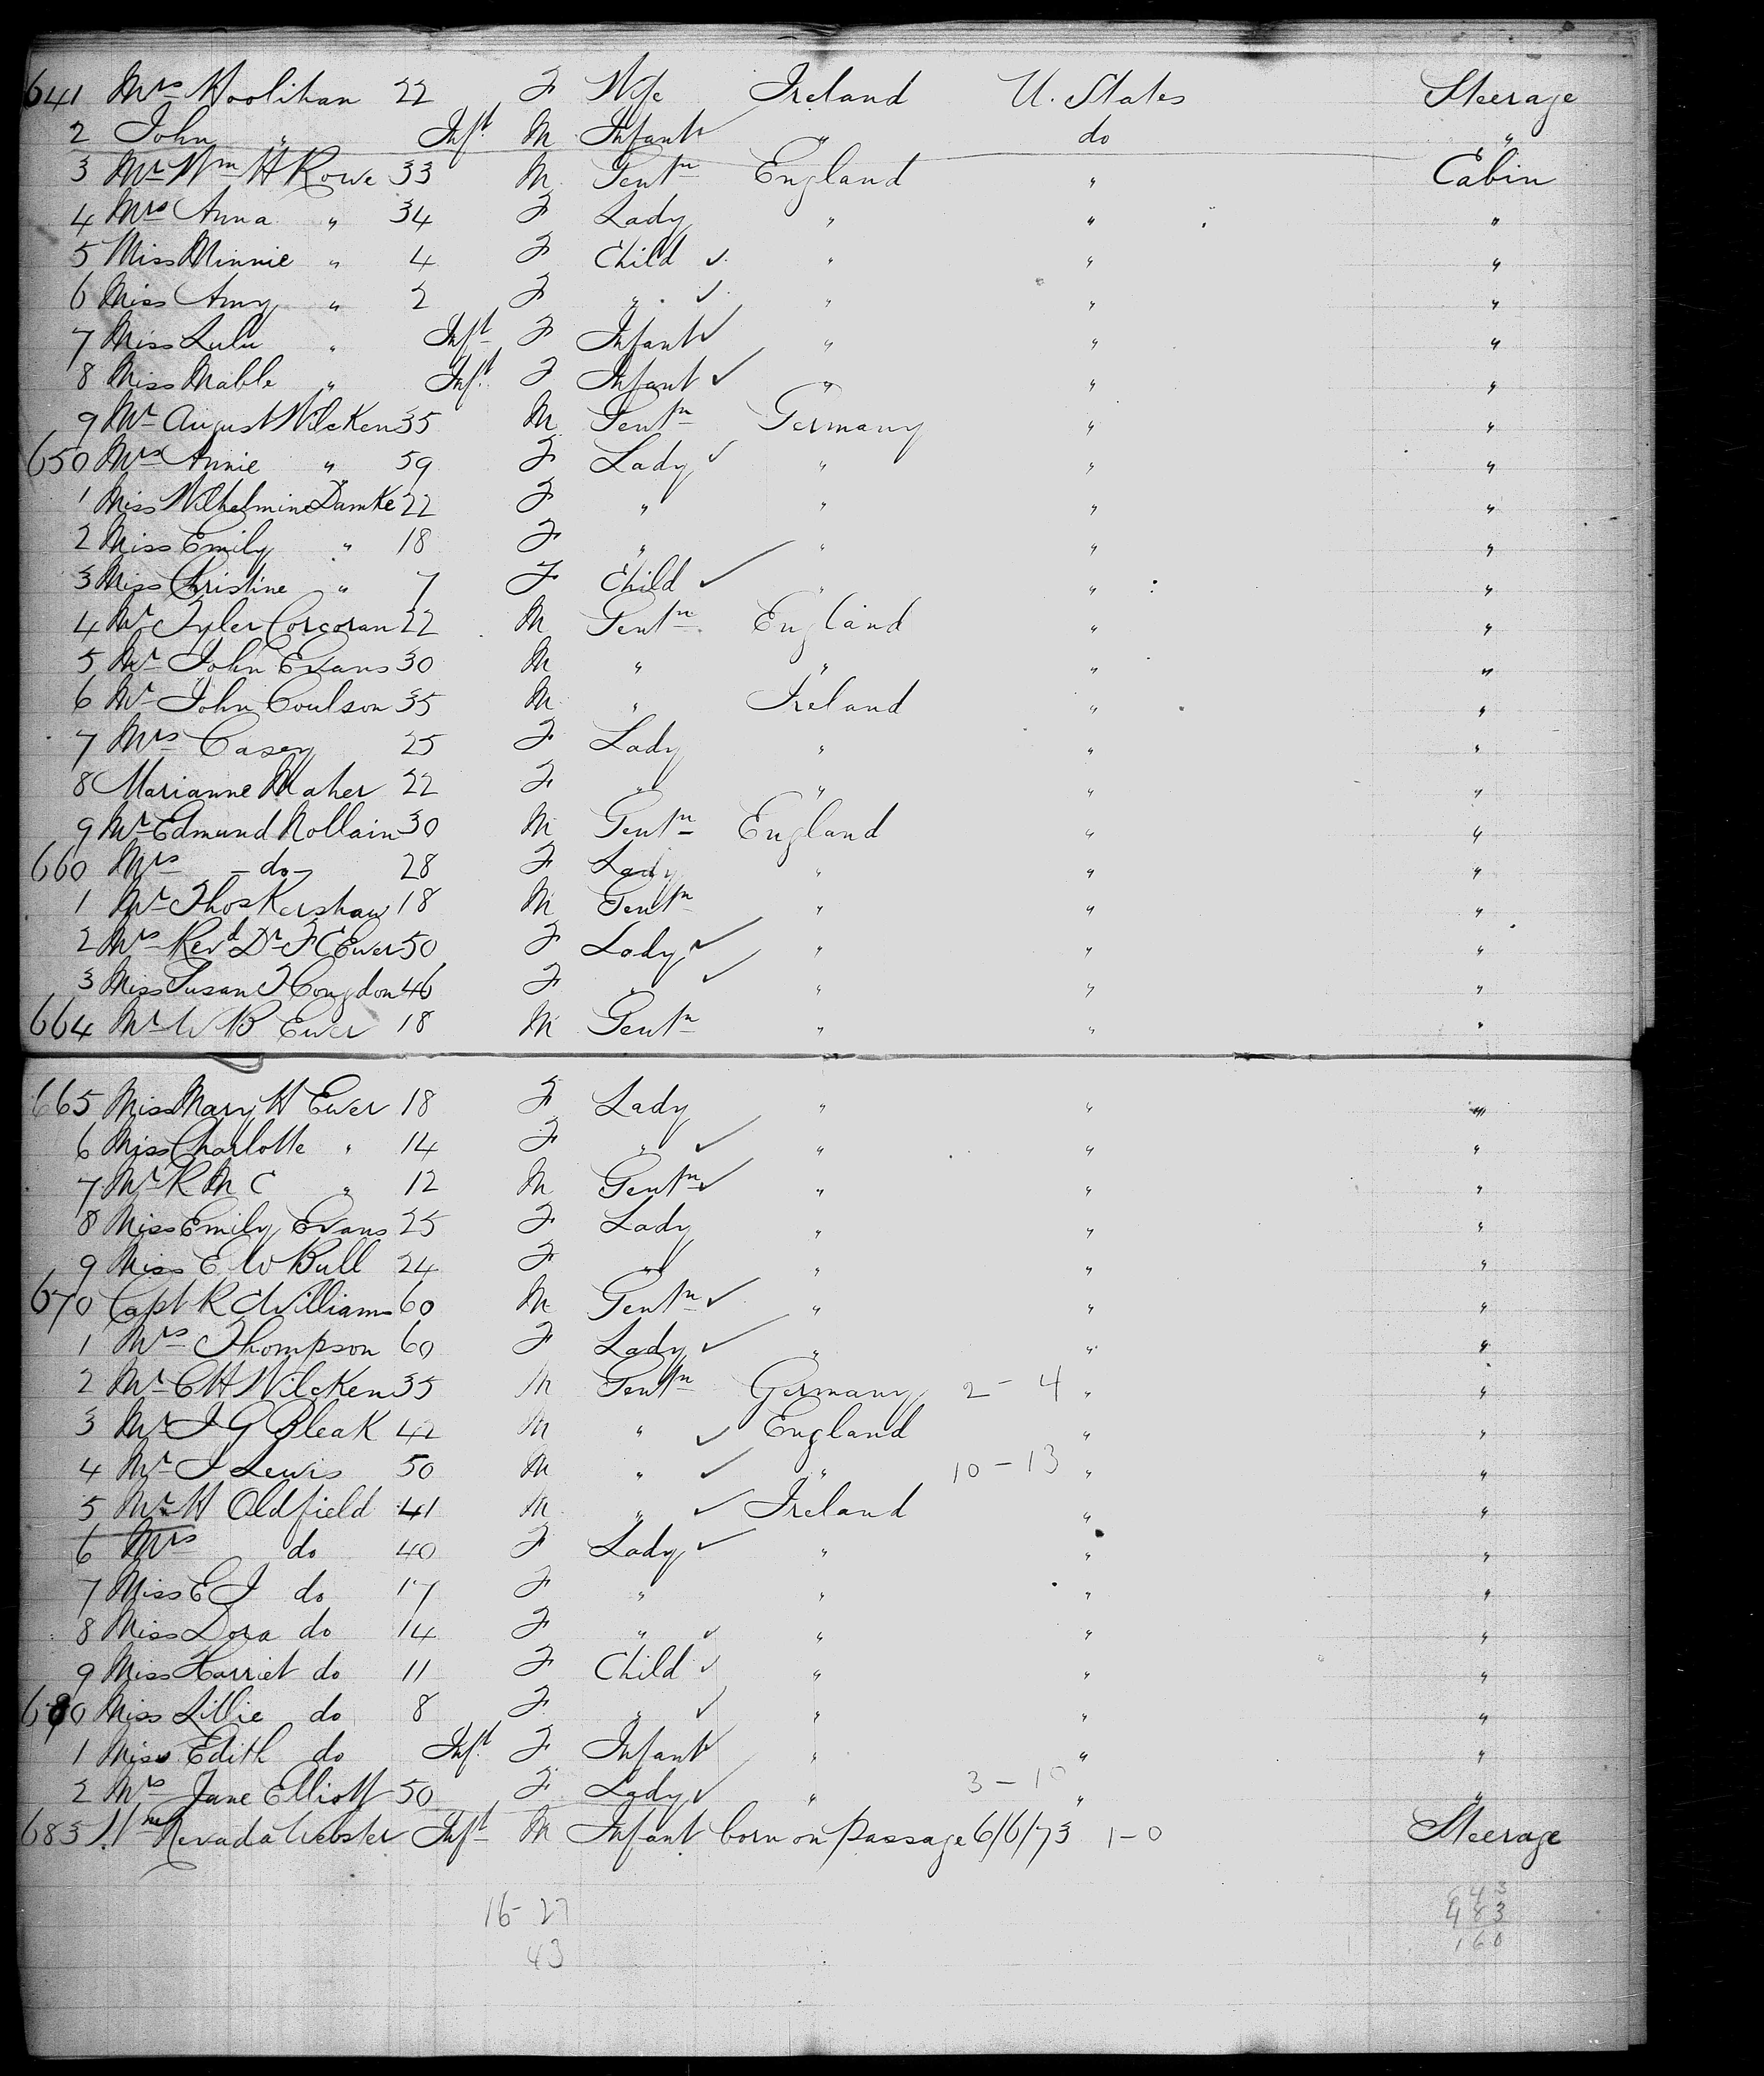 641 Mrs Hoolihan 22 F Wife Ireland U. States Steerage
2 John " Inft M Infant " do "
3 Mr Wm H Rowe 33 M Gentn England " Cabin
4 Mrs Anna " 34 F Lady " " "
5 Miss Minnie " 4 F Child ✓ " " "
6 Miss Amy " 2 F " ✓ " " "
7 Miss Lulu " Inft F Infant ✓ " " "
8 Miss Mable " Inft F Infant ✓ " " "
9 Mr August Wilcken 35 M Gentn Germany " "
650 Mrs Annie " 59 F Lady ✓ " " "
1 Miss Wilhelmine Damke 22 F " " " "
2 Miss Emily " 18 F " " " "
3 Miss Christine " 7 F Child ✓ " " "
4 Mr Tyler Corcoran 22 M Gentn England " "
5 Mr John Evans 30 M " " " "
6 Mr John Coulson 35 M " Ireland " "
7 Mrs Casey 25 F Lady " " "
8 Marianne Maher 22 F " " " "
9 Mr Edmund Rollain 30 M Gentn England " "
660 Mrs - do - 28 F Lady " " "
1 Mr Thos Kershaw 18 M Gentn " " "
2 Mrs Revd Dr F C Ewer 50 F Lady ✓ " " "
3 Miss Susan T Congdon 46 F " ✓ " " "
664 Mr W B Ewer 18 M Gentn " " "
665 Miss Mary H Ewer 18 F Lady " " "
6 Miss Charlotte " 14 F " ✓ " " "
7 Mr R M C " 12 M Gentn ✓ " " "
8 Miss Emily Evans 25 F Lady " " "
9 Miss E W Bull 24 F " " " "
670 Capt R C Williams 60 M Gentn ✓ " " "
1 Mrs Thompson 60 F Lady ✓ " " "
2 Mr C H Wilcken 35 M Gentn Germany 2 - 4 " "
3 Mr J G Bleak 42 M " ✓ England " "
4 Mr J Lewis 50 M " ✓ " 10 - 13 " "
5 Mr H Oldfield 41 M " ✓ Ireland " "
6 Mrs do 40 F Lady ✓ " " "
7 Miss E J do 17 F " " " "
8 Miss Dora do 14 F " ✓ " " "
9 Miss Harriet do 11 F Child ✓ " " "
680 Miss Lillie do 8 F " ✓ " " "
1 Miss Edith do Inft F Infant ✓ " " "
2 Mrs Jane Elliott 50 F Lady ✓ " 3 - 10 " "
683 Nevada Webster Inft M Infant born on passage 6/6/73 1 - 0 Steerage
16 - 27
43
643
483
160